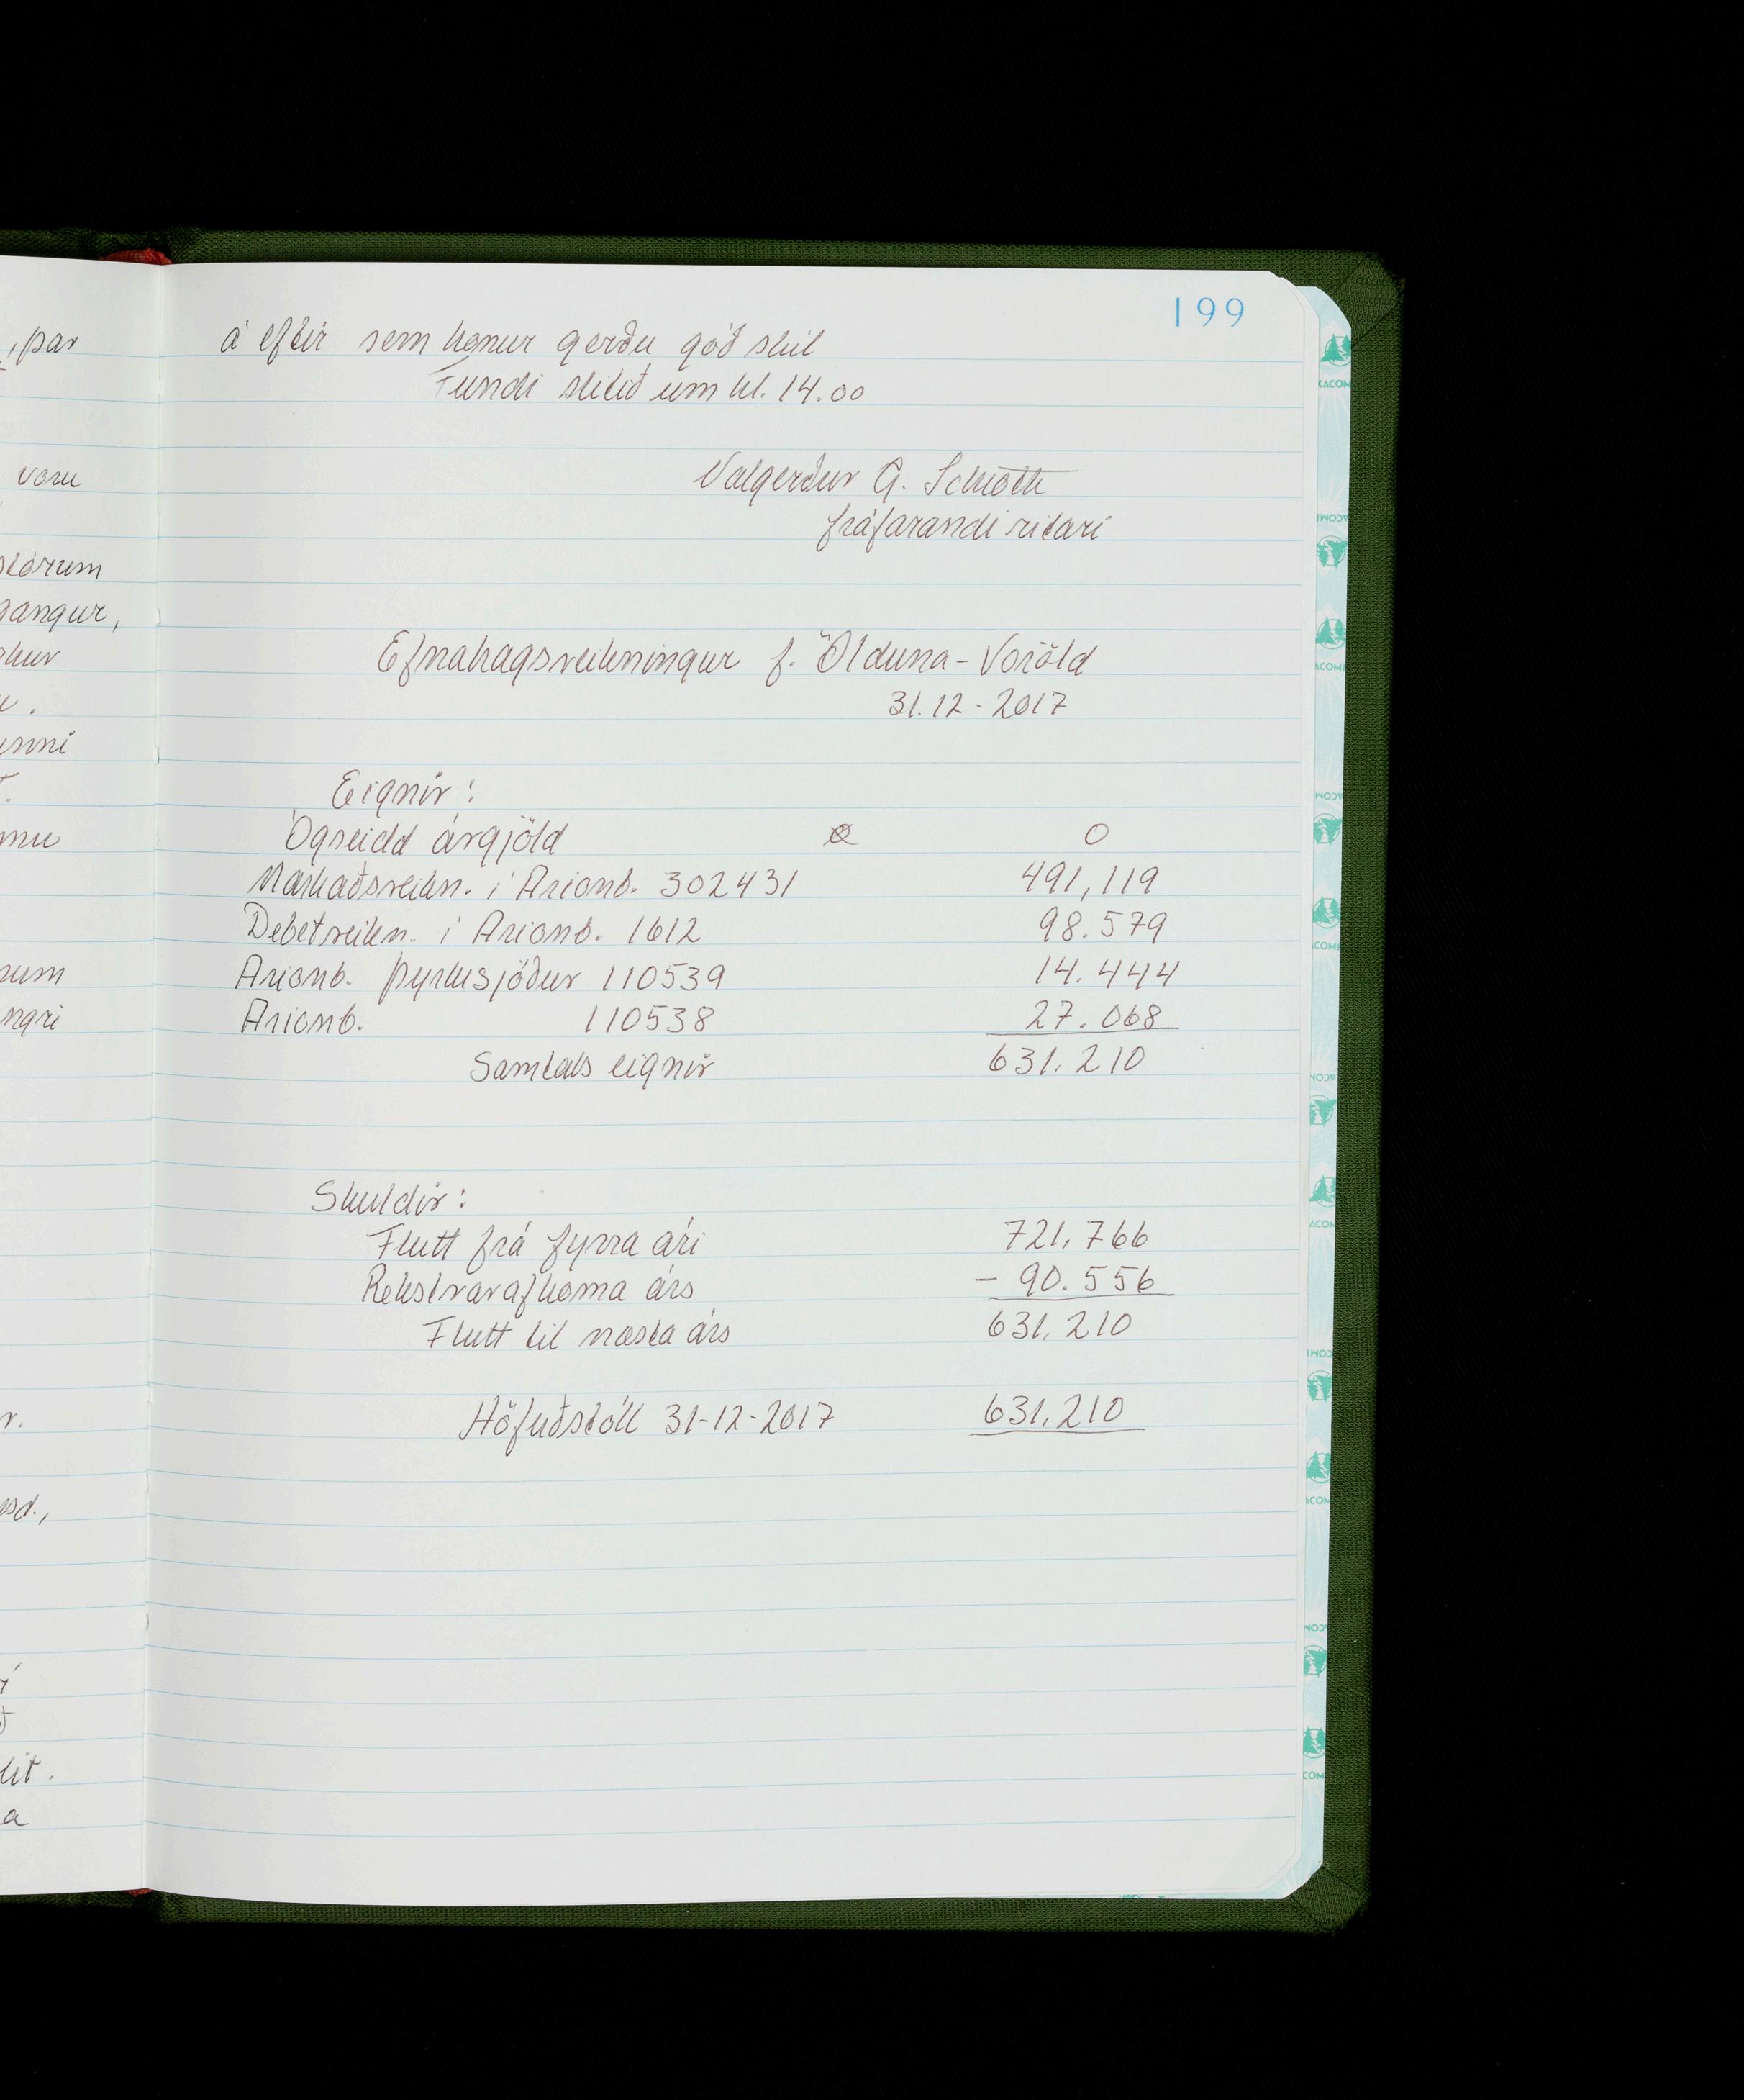 199
, þar
á eftir sem konur gerðu góð skil
Fundi slitið um kl. 14.00
voru
Valgerður G. Schiöth
fráfarandi ritari
stórum
gangur,
Efnahagsreikningur f. Ölduna-Voröld
31.12-2017
unni
Eignir:
Ógreidd árgjöld 0
Markaðsreikn. í Arionb. 302431 491,119
Debetreikn. í Arionb. 1612 98.579
Arionb. þyrlusjóður 110539 14.444
Arionb. 110538 27.068
Samtals eignir 631.210
Skuldir:
Flutt frá fyrra ári 721,766
Rekstrarafkoma árs - 90.556
Flutt til næsta árs 631,210
Höfuðstóll 31-12-2017 631,210